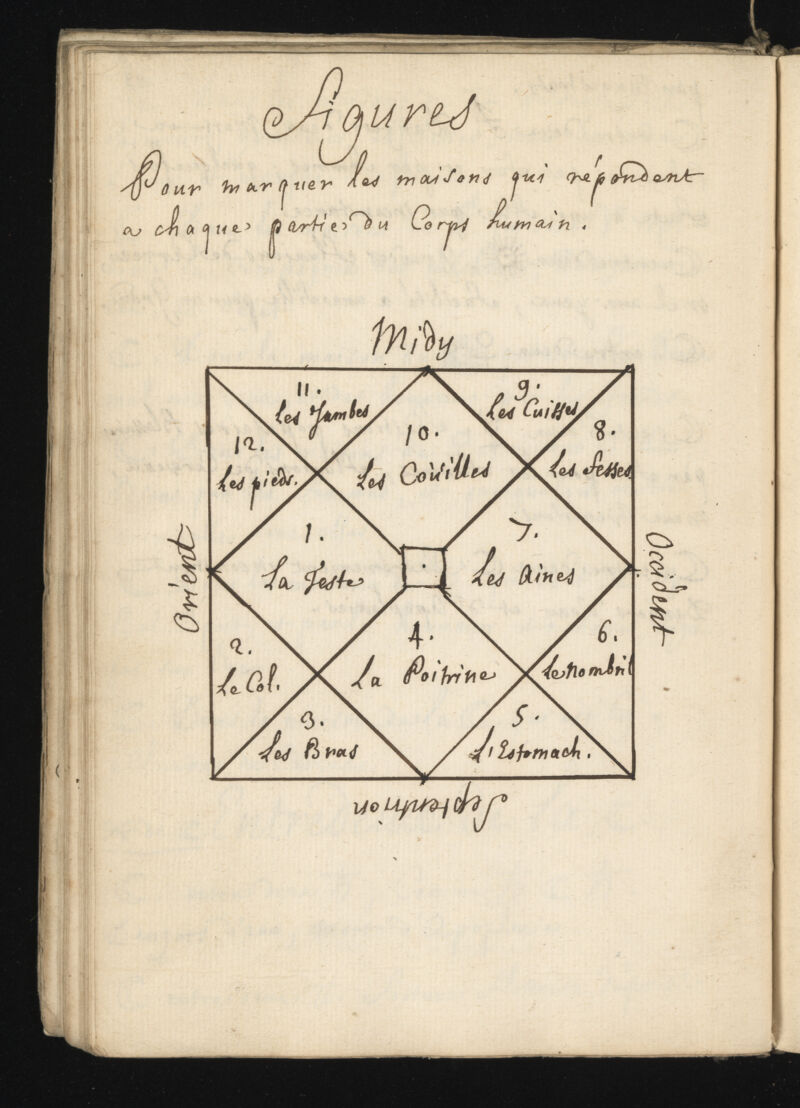 Figures
Pour marquer les maisons qui répondent
a chaque partie du Corps humain.
Midy
11.
Les Jambes
9.
Les Cuisses
12.
Les pieds.
10.
Les Couilles
8.
Les fesses
Orient
1.
La Teste
7.
Les Aines
Occident
2.
Le Col.
4.
La Poitrine
6.
Le nombril
3.
Les Bras
5.
L'Estomach.
Septentrion